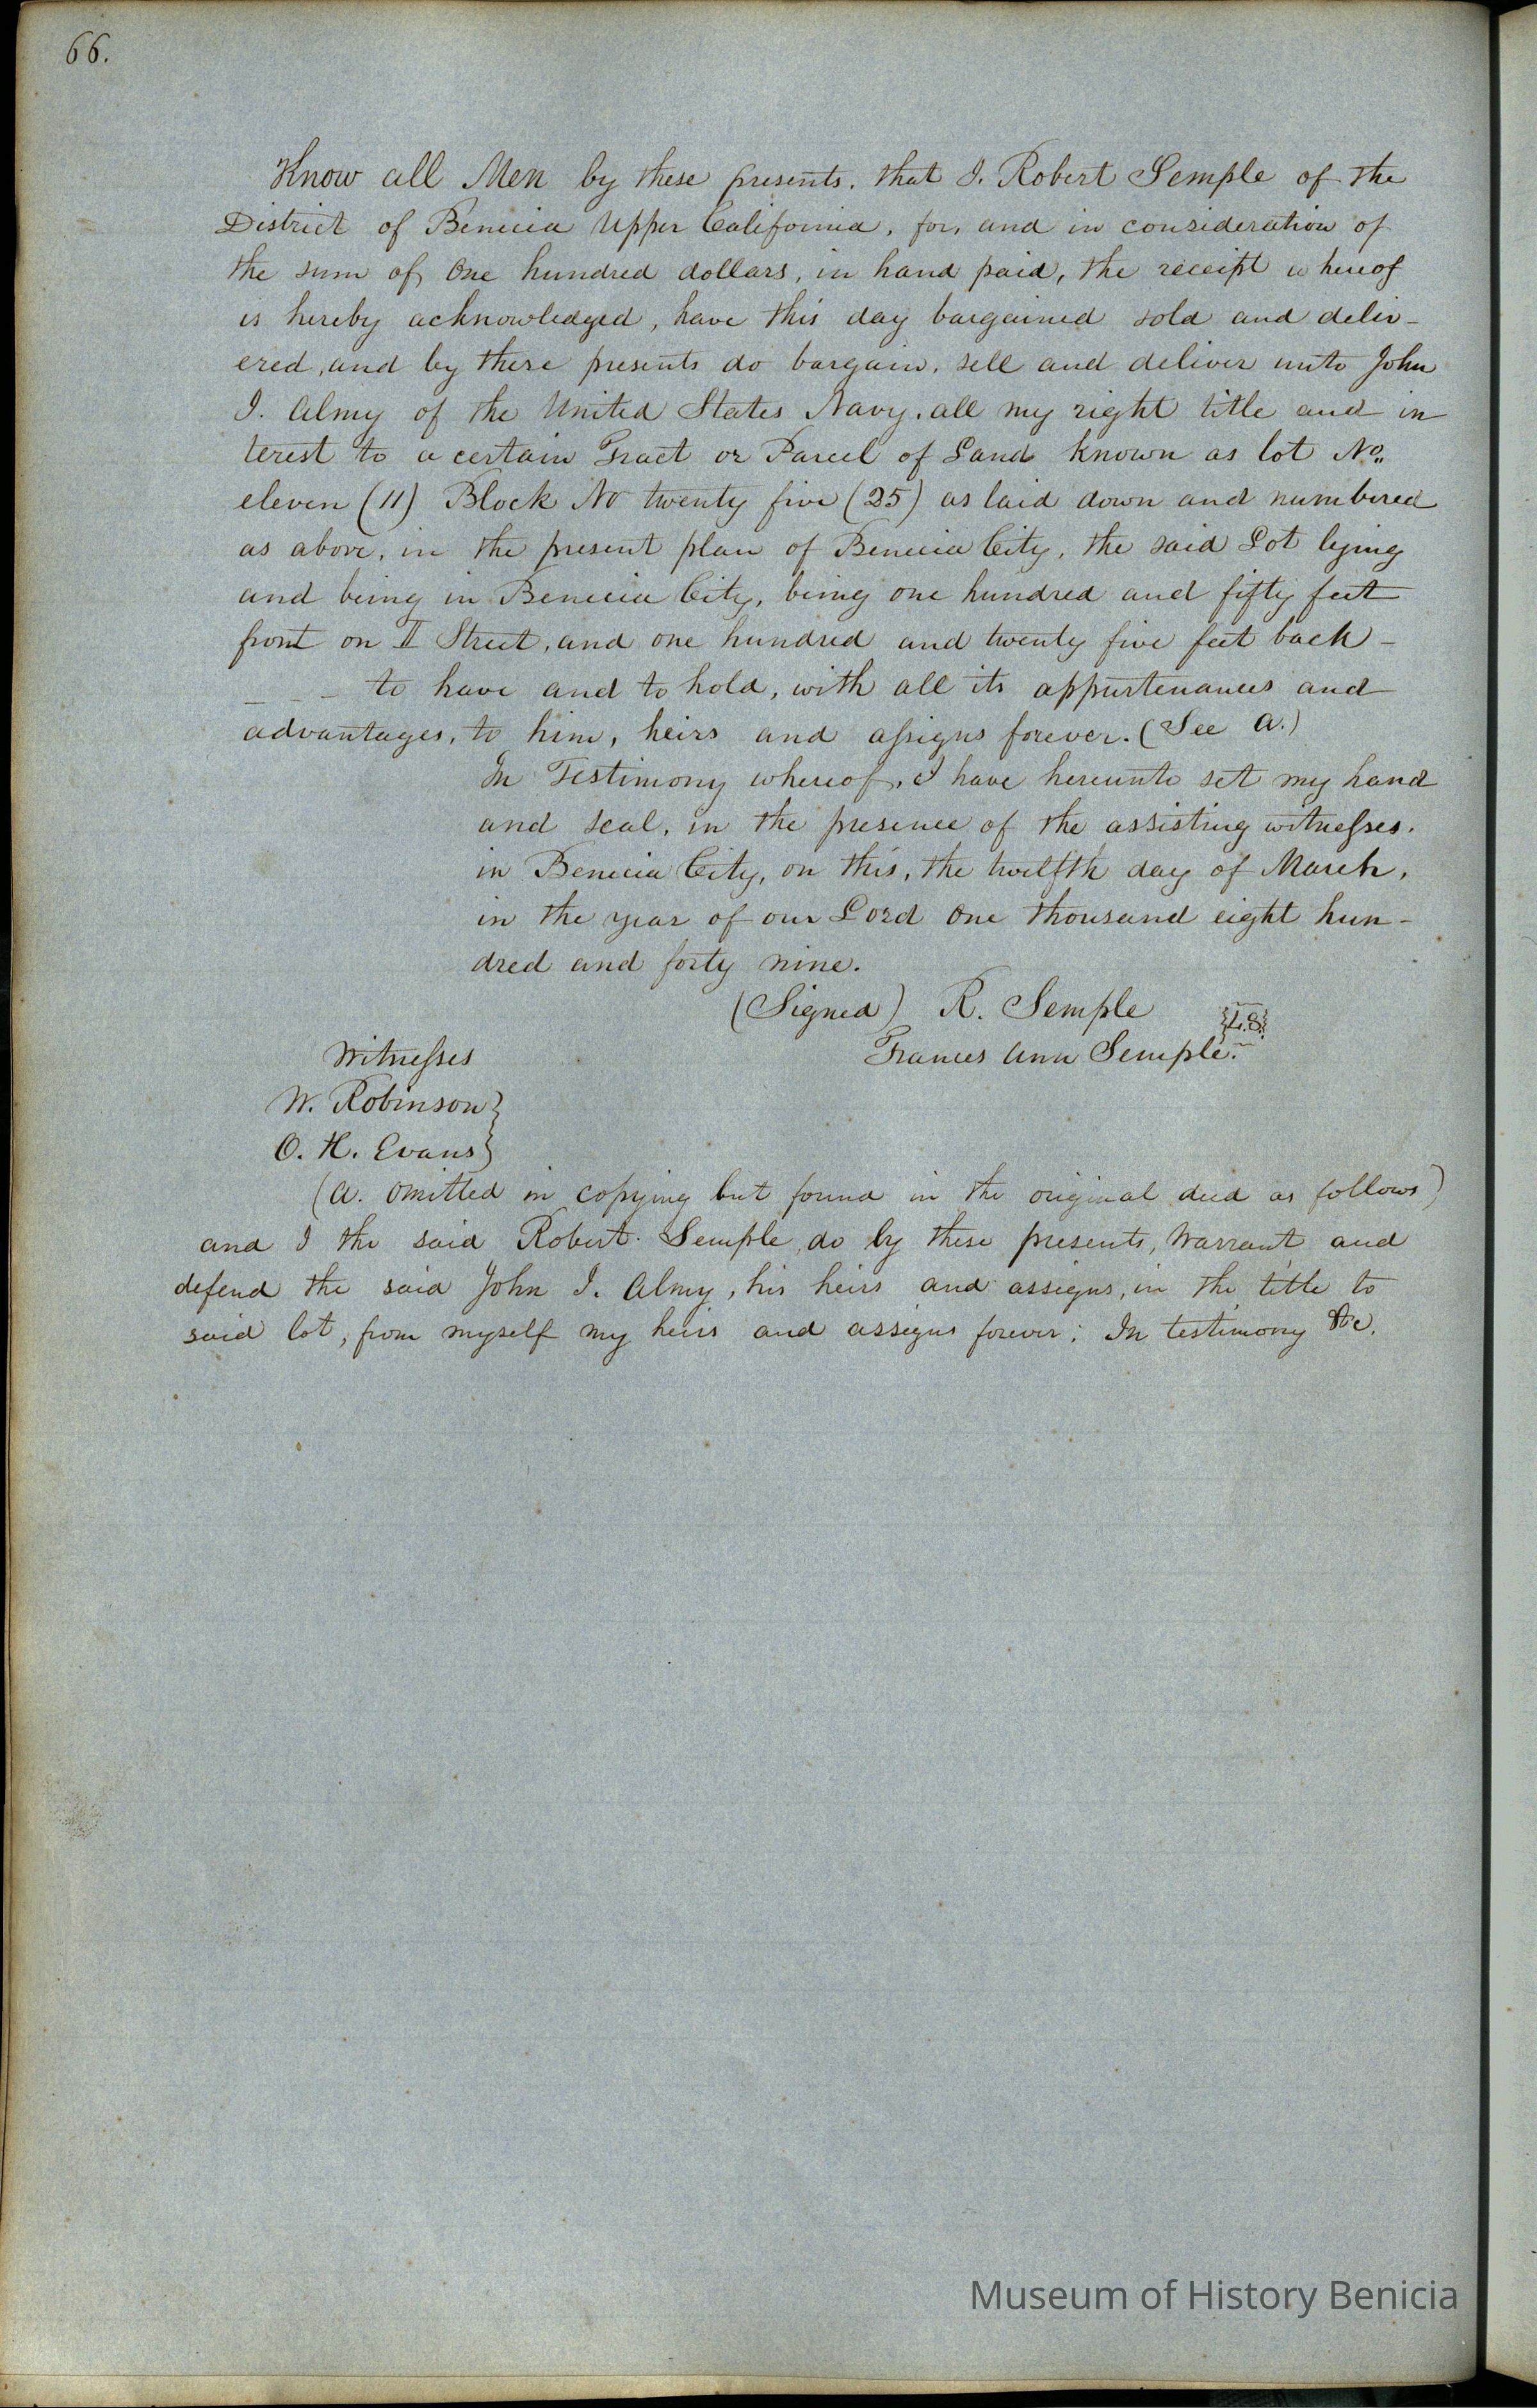 66.
Know all Men by these presents, that I, Robert Semple of the
District of Benicia Upper California, for, and in consideration of
the sum of One hundred dollars, in hand paid, the receipt whereof
is hereby acknowledged, have this day bargained sold and deliv-
ered, and by these presents do bargain, sell and deliver unto John
I. Almy of the United States Navy, all my right title and in
terest to a certain Tract or Parcel of Land known as lot No.
eleven (11) Block No twenty five (25) as laid down and numbered
as above, in the present plan of Benicia City, the said Lot lying
and being in Benicia City, being one hundred and fifty feet
front on II Street, and one hundred and twenty five feet back -
_ _ _ to have and to hold, with all its appurtenances and
advantages, to him, heirs and assigns forever. (See a.)
In Testimony whereof, I have hereunto set my hand
and seal, in the presence of the assisting witnesses.
in Benicia City, on this, the twelfth day of March,
in the year of our Lord One thousand eight hun-
dred and forty nine.
(Signed) R. Semple {L.S.}
Witnesses Frances Ann Semple.
W. Robinson }
O. H. Evans }
(a. omitted in copying but found in the original deed as follows)
and I the said Robert Semple, do by these presents, Warrant and
defend the said John I. Almy, his heirs and assigns, in the title to
said lot, from myself my heirs and assigns forever; In testimony &c.
Museum of History Benicia